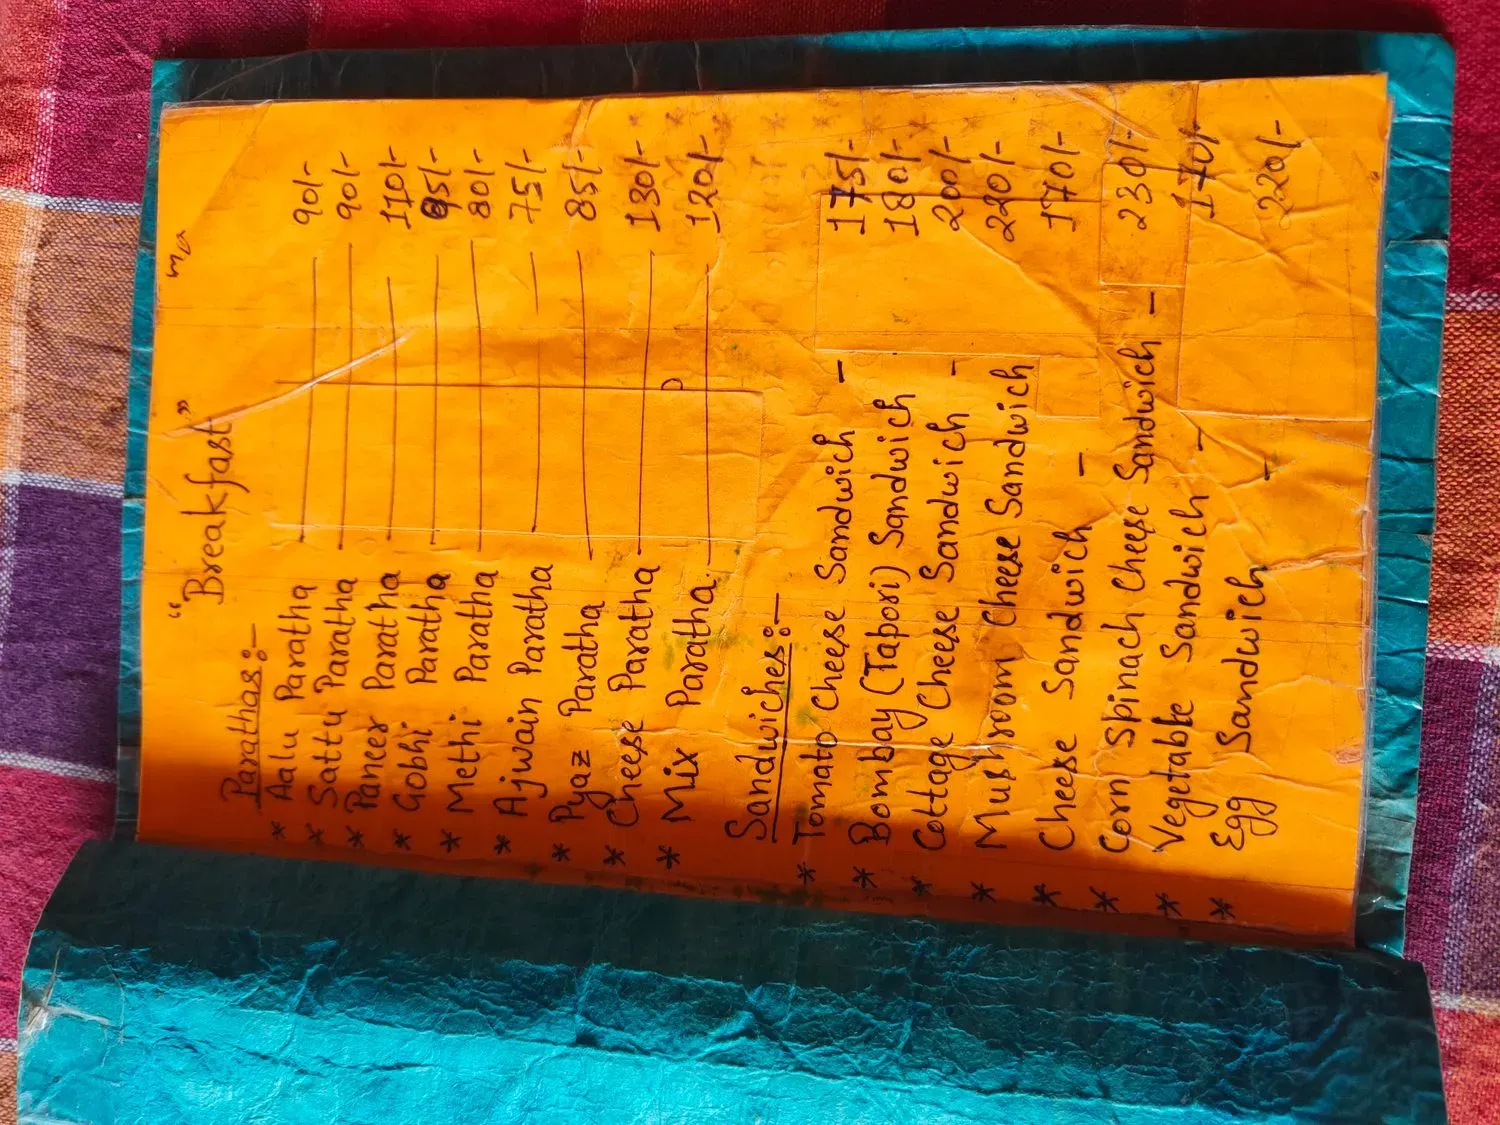 "Breakfast"
Parathas:-
* Aalu Paratha 90/-
* Sattu Paratha 90/-
* Paneer Paratha 110/-
* Gobhi Paratha 95/-
* Methi Paratha 80/-
* Ajwain Paratha 75/-
* Pyaz Paratha 85/-
* Cheese Paratha 130/-
* Mix Paratha 120/-
Sandwiches:-
* Tomato Cheese Sandwich - 175/-
* Bombay (Tapori) Sandwich 180/-
* Cottage Cheese Sandwich - 200/-
* Mushroom Cheese Sandwich 220/-
* Cheese Sandwich - 170/-
* Corn Spinach Cheese Sandwich - 230/-
* Vegetable Sandwich - 170/-
* Egg Sandwich - 220/-